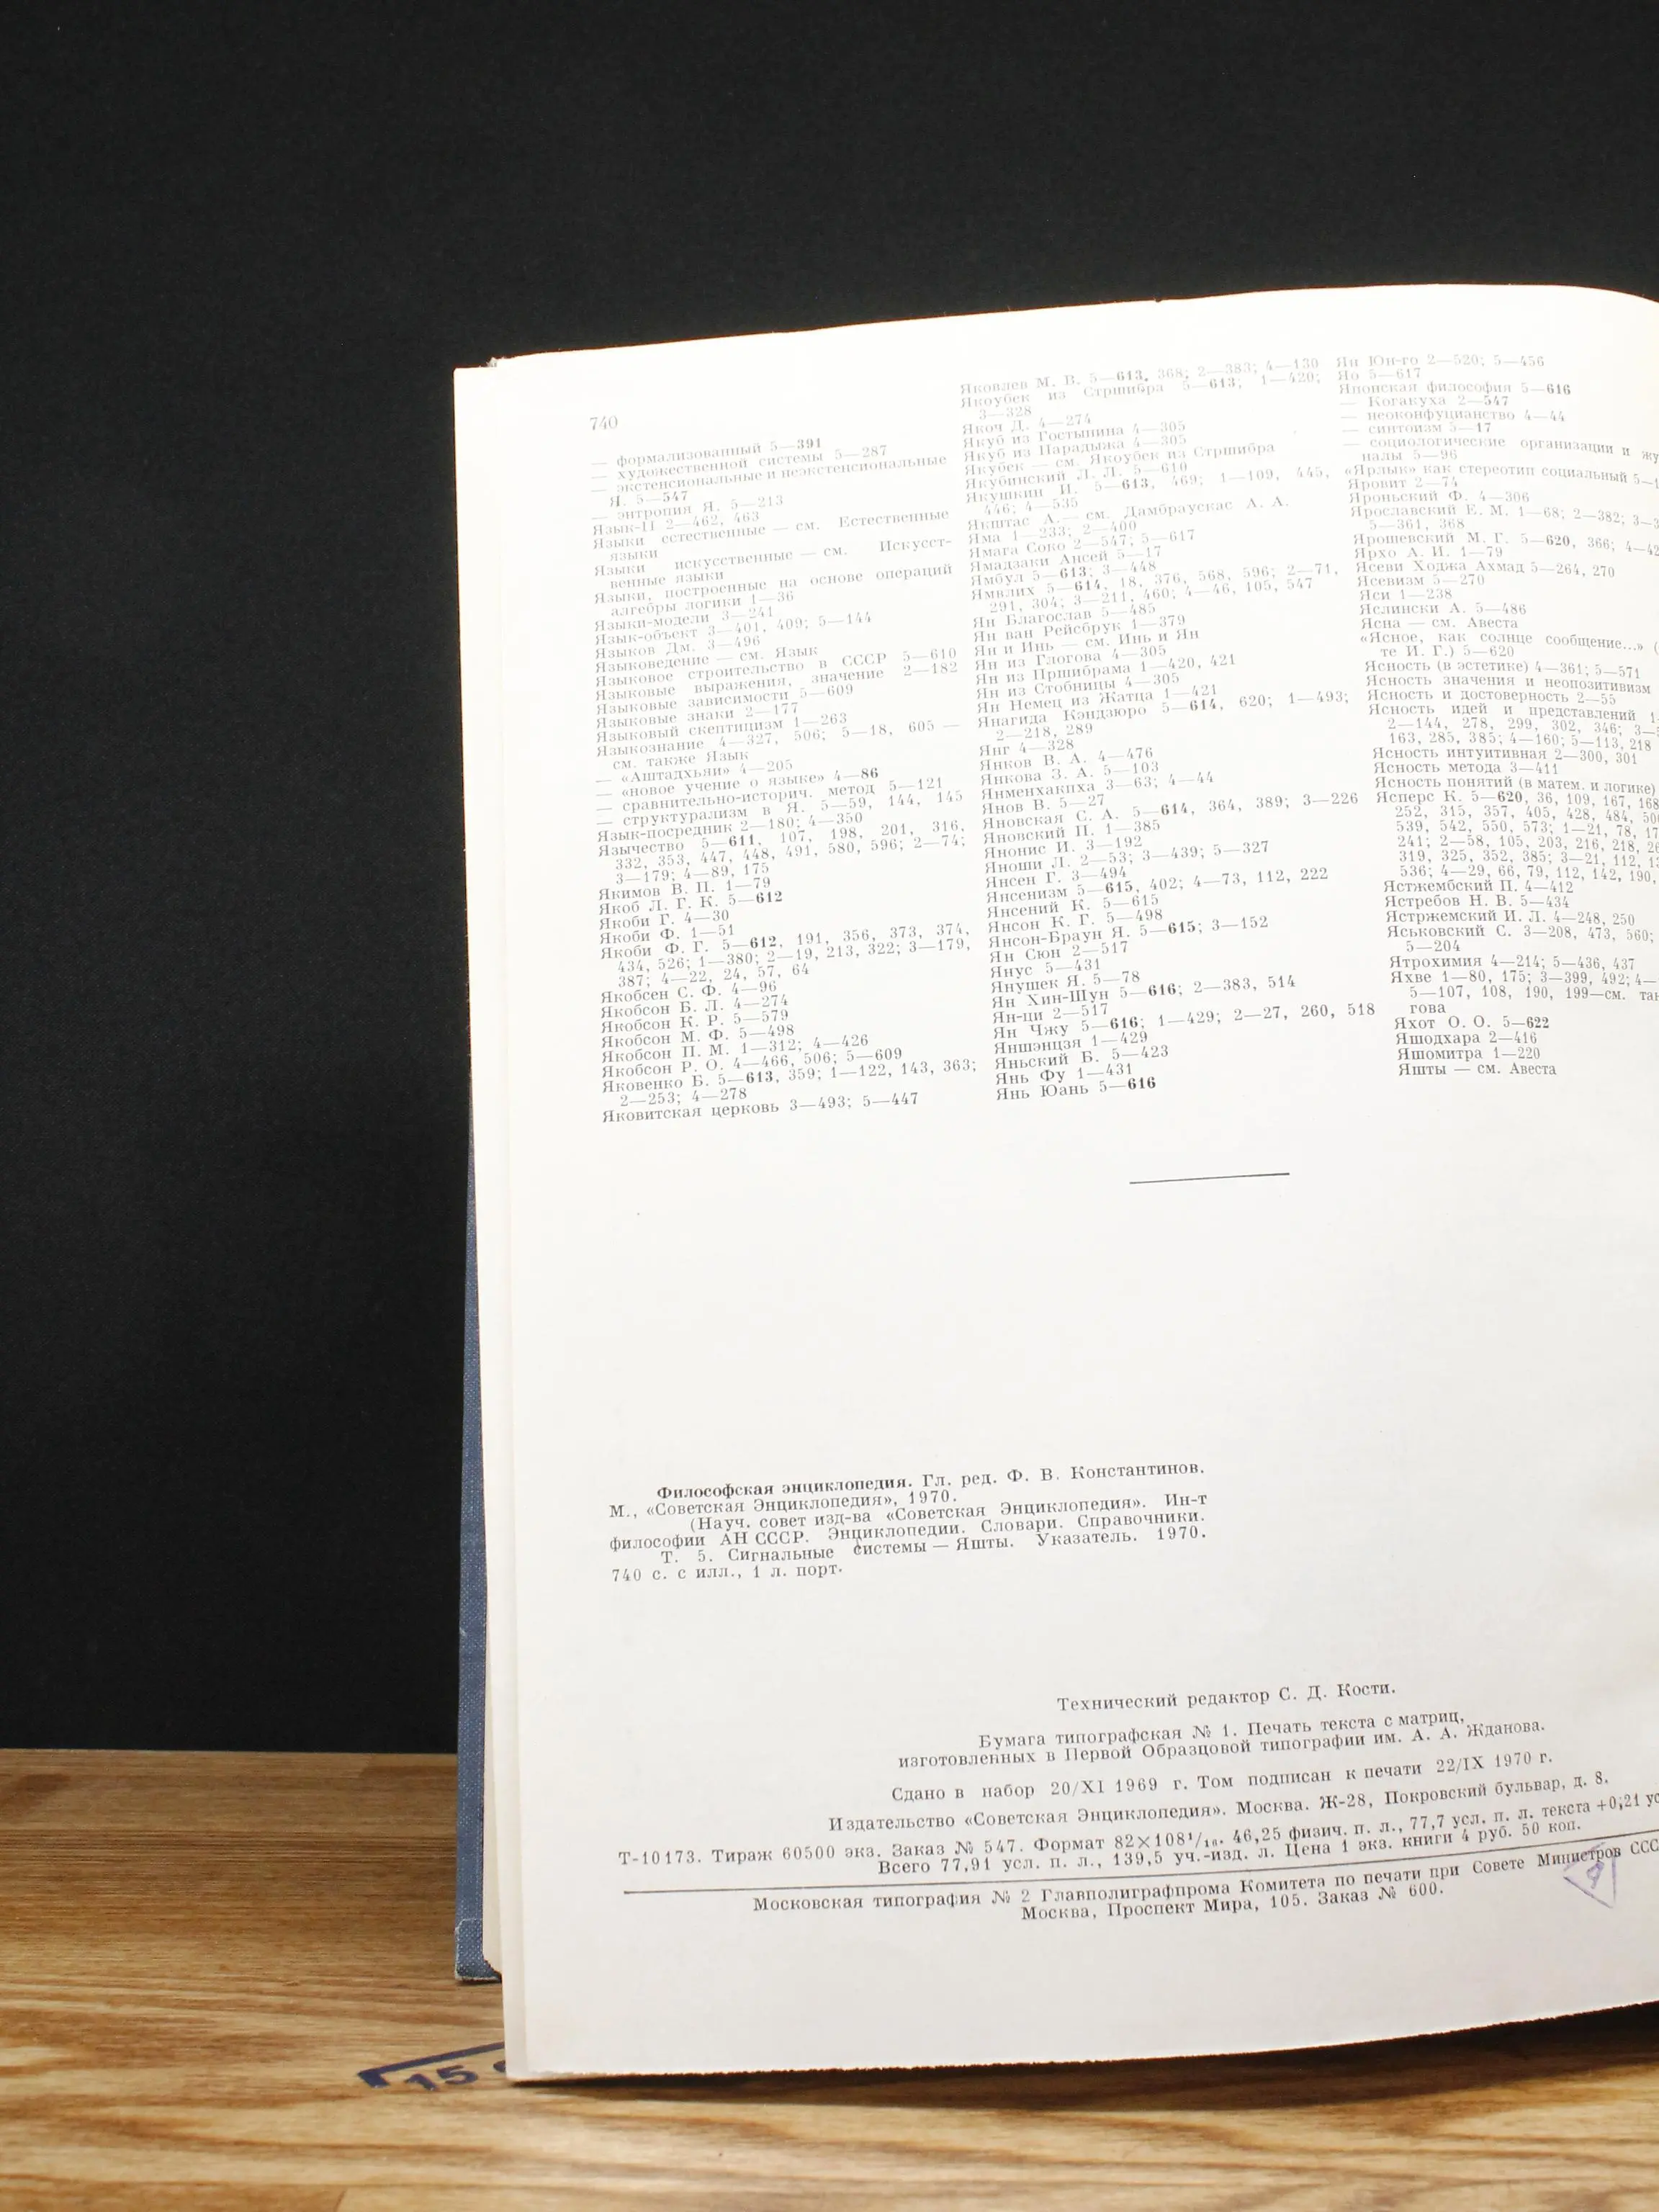 740
— формализованный 5—391
— художественной системы 5—287
— экстенсиональные и неэкстенсиональные
Я. 5—547
— энтропия Я. 5—213
Язык-П 2—462, 463
Языки естественные — см. Естественные
языки
Языки искусственные — см. Искусст-
венные языки
Языки, построенные на основе операций
алгебры логики 1—36
Языки-модели 3—241
Язык-объект 3—401, 409; 5—144
Языков Дм. 3—496
Языковедение — см. Язык
Языковое строительство в СССР 5—610
Языковые выражения, значение 2—182
Языковые зависимости 5—609
Языковые знаки 2—177
Языковый скептицизм 1—263
Языкознание 4—327, 506; 5—18, 605 —
см. также Язык
— «Аштадхьяи» 4—205
— «новое учение о языке» 4—86
— сравнительно-историч. метод 5—121
— структурализм в Я. 5—59, 144, 145
Язык-посредник 2—180; 4—350
Язычество 5—611, 107, 198, 201, 316,
332, 353, 447, 448, 491, 580, 596; 2—74;
3—179; 4—89, 175
Якимов В. П. 1—79
Якоб Л. Г. К. 5—612
Якоби Г. 4—30
Якоби Ф. 1—51
Якоби Ф. Г. 5—612, 191, 356, 373, 374,
434, 526; 1—380; 2—19, 213, 322; 3—179,
387; 4—22, 24, 57, 64
Якобсен С. Ф. 4—96
Якобсон Б. Л. 4—274
Якобсон К. Р. 5—579
Якобсон М. Ф. 5—498
Якобсон П. М. 1—312; 4—426
Якобсон Р. О. 4—466, 506; 5—609
Яковенко Б. 5—613, 359; 1—122, 143, 363;
2—253; 4—278
Яковитская церковь 3—493; 5—447
Яковлев М. В. 5—613, 368; 2—383; 4—130
Якоубек из Стршибра 5—613; 1—420;
3—328
Якоч Д. 4—274
Якуб из Гостынина 4—305
Якуб из Парадыжа 4—305
Якубек — см. Якоубек из Стршибра
Якубинский Л. П. 5—610
Якушкин И. 5—613, 469; 1—109, 445,
446; 4—535
Якштас А. — см. Дамбраускас А. А.
Яма 1—233; 2—400
Ямага Соко 2—547; 5—617
Ямадзаки Ансей 5—17
Ямбул 5—613; 3—448
Ямвлих 5—614, 18, 376, 568, 596; 2—71,
291, 304; 3—211, 460; 4—46, 105, 547
Ян Благослав 5—485
Ян ван Рейсбрук 1—379
Ян и Инь — см. Инь и Ян
Ян из Глогова 4—305
Ян из Пршибрама 1—420, 421
Ян из Стобницы 4—305
Ян Немец из Жатца 1—421
Янагида Кэндзюро 5—614, 620; 1—493;
2—218, 289
Янг 4—328
Янков В. А. 4—476
Янкова З. А. 5—103
Янменхакпха 3—63; 4—44
Янов В. 5—27
Яновская С. А. 5—614, 364, 389; 3—226
Яновский П. 1—385
Янонис И. 3—192
Яноши Л. 2—53; 3—439; 5—327
Янсен Г. 3—494
Янсенизм 5—615, 402; 4—73, 112, 222
Янсений К. 5—615
Янсон К. Г. 5—498
Янсон-Браун Я. 5—615; 3—152
Ян Сюн 2—517
Янус 5—431
Янушек Я. 5—78
Ян Хин-Шун 5—616; 2—383, 514
Ян-ци 2—517
Ян Чжу 5—616; 1—429; 2—27, 260, 518
Яншэнцзя 1—429
Яньский Б. 5—423
Янь Фу 1—431
Янь Юань 5—616
Ян Юн-го 2—520; 5—456
Яо 5—617
Японская философия 5—616
— Когакуха 2—547
— неоконфуцианство 4—44
— синтоизм 5—17
— социологические организации и жу
налы 5—96
«Ярлык» как стереотип социальный 5—1
Яровит 2—74
Яроньский Ф. 4—306
Ярославский Е. М. 1—68; 2—382; 3—3
5—361, 368
Ярошевский М. Г. 5—620, 366; 4—42
Ярхо А. И. 1—79
Ясеви Ходжа Ахмад 5—264, 270
Ясевизм 5—270
Яси 1—238
Яслински А. 5—486
Ясна — см. Авеста
«Ясное, как солнце сообщение...» (
те И. Г.) 5—620
Ясность (в эстетике) 4—361; 5—571
Ясность значения и неопозитивизм
Ясность и достоверность 2—55
Ясность идей и представлений 1—
2—144, 278, 299, 302, 346; 3—
163, 285, 385; 4—160; 5—113, 218
Ясность интуитивная 2—300, 301
Ясность метода 3—411
Ясность понятий (в матем. и логике)
Ясперс К. 5—620, 36, 109, 167, 168
252, 315, 357, 405, 428, 484, 50
539, 542, 550, 573; 1—21, 78, 17
241; 2—58, 105, 203, 216, 218, 26
319, 325, 352, 385; 3—21, 112, 1
536; 4—29, 66, 79, 112, 142, 190,
Ястжембский П. 4—412
Ястребов Н. В. 5—434
Ястржемский И. Л. 4—248, 250
Яськовский С. 3—208, 473, 560;
5—204
Ятрохимия 4—214; 5—436, 437
Яхве 1—80, 175; 3—399, 492; 4—
5—107, 108, 190, 199—см. так
гова
Яхот О. О. 5—622
Яшодхара 2—416
Яшомитра 1—220
Яшты — см. Авеста
Философская энциклопедия. Гл. ред. Ф. В. Константинов.
М., «Советская Энциклопедия», 1970.
(Науч. совет изд-ва «Советская Энциклопедия». Ин-т
философии АН СССР. Энциклопедии. Словари. Справочники.
Т. 5. Сигнальные системы — Яшты. Указатель. 1970.
740 с. с илл., 1 л. порт.
Технический редактор С. Д. Кости.
Бумага типографская № 1. Печать текста с матриц,
изготовленных в Первой Образцовой типографии им. А. А. Жданова.
Сдано в набор 20/XI 1969 г. Том подписан к печати 22/IX 1970 г.
Издательство «Советская Энциклопедия». Москва. Ж-28, Покровский бульвар, д. 8.
Т-10173. Тираж 60500 экз. Заказ № 547. Формат 82×108¹/₁₆. 46,25 физич. п. л., 77,7 усл. п. л. текста +0,21 ус
Всего 77,91 усл. п. л., 139,5 уч.-изд. л. Цена 1 экз. книги 4 руб. 50 коп.
Московская типография № 2 Главполиграфпрома Комитета по печати при Совете Министров ССС
Москва, Проспект Мира, 105. Заказ № 600.
9
15